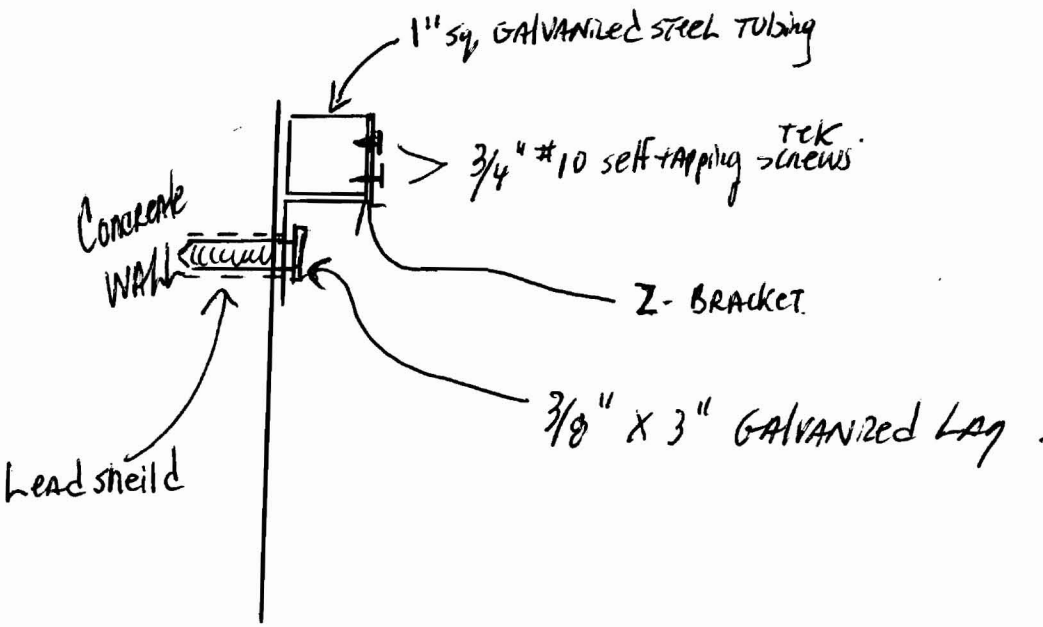 1" sq. GAlVANized STEEL TUbing
3/4" #10 self tApping Tek screws
CONCREATE
WALL
Z- BRACKET.
3/8" X 3" GAlVANized LAg.
LeAd sheild